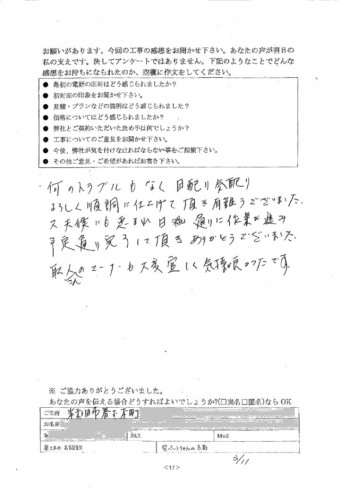 お願いがあります。今回の工事の感想をお聞かせ下さい。あなたの声が明日の
私の支えです。決してアンケートではありません。下記のようなことでどんな
感想をお持ちになられたのか、空欄に作文をしてください。
● 最初の電話の応対はどう感じられましたか?
● 初対面の印象をお聞かせ下さい。
● 見積・プランなどの説明はどう感じられましたか?
● 価格についてはどう感じられましたか?
● 弊社とご契約いただいた決め手は何でしょうか?
● 工事についてのご意見をお聞かせ下さい。
● 今後、弊社が気を付けなければならない事をご指摘下さい。
● その他ご意見・ご希望があればお書き下さい。
何のトラブルもなく目配り気配り
よろしく順調に仕上げて頂き有難うございました。
又天候にも恵まれ日程通りに作業が進み
予定通り完了して頂きありがとうございました。
職人さんのマナーも大変宜しく気持良かったです。
※ ご協力ありがとうございました。
あなたの声を伝える場合どうすればよいでしょうか?(□実名□匿名)なら OK
ご住所
お名前
FAX
Mail
3/11
<17>